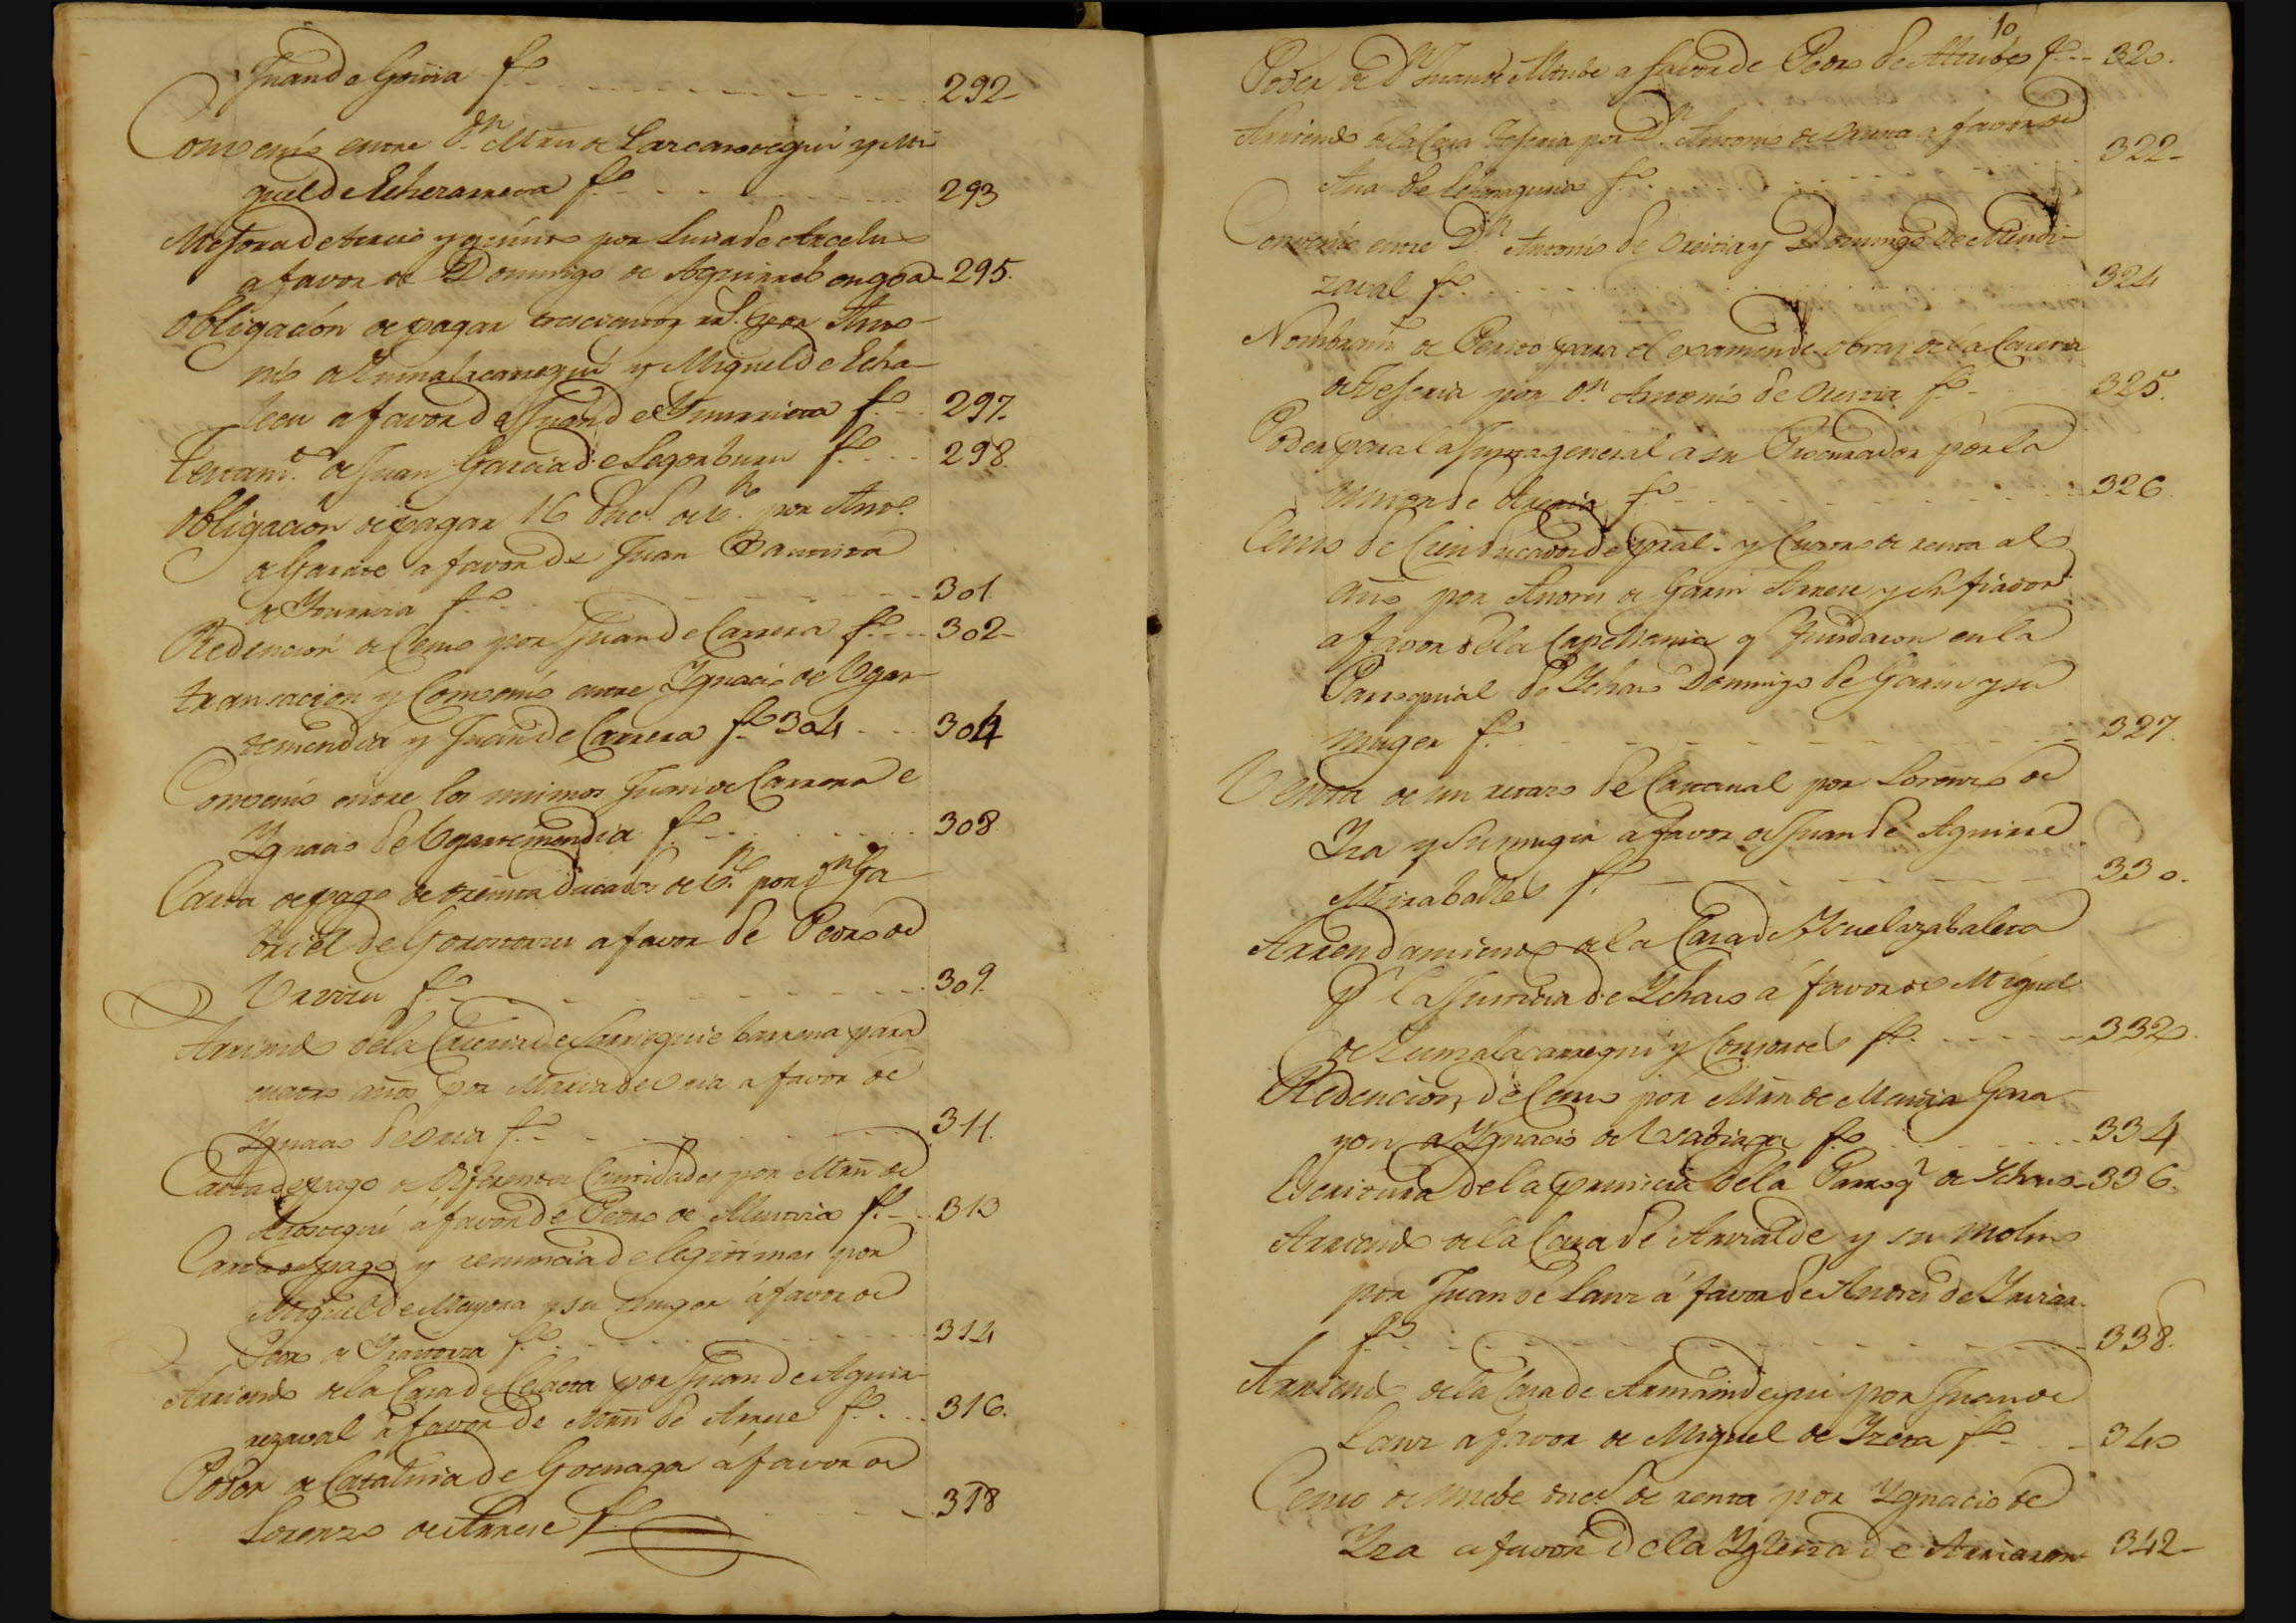 Juan de Goiria f.º 292
Convenio entre D.n Mrn de Larcanotegui y Mi
guel de Echezarreta f.º 293
Mejora de tercio y quinto por Luisa de Arcelus
a favor de Domingo de Aguirrebengoa 295.
Obligación de pagar trescientos rs. por Anto
nio de Zumalacarregui y Miguel de Echa
lecu a favor de Juan de Ymurrieta f.º 297.
Testam.to de Juan Garcia de Legorburu f.º 298.
Obligación de pagar 16 duc.s de v.n por Ant.o
de Garate a favor de Juan Bautista
de Yturria f.º 301.
Redención de Censo por Juan de Carrera f.º 302
transación y Convenio entre Ygnacio de Ugar
temendia y Juan de Carrera f.º 304 304
Convenio entre los mismos Juan de Carrera e
Ygnacio de Ugartemendia f.º 308.
Carta de pago de treinta ducados de v.n por D.n Ga
briel de Gorostorzu a favor de Pedro de
Urvizu f.º 309.
Arriendo de la Caseria de Sarriegui barrena para
cuatro años por Maria de Oria a favor de
Ygnacio de Oria f.º 311.
Carta de pago de diferentes Cantidades por Mrn de
Arostegui á favor de Pedro de Murria f.º 313
Carta de pago y renuncia de legitimas por
Miguel de Mayora y su muger á favor de
Pedro de Yrastorza f.º 314
Arriendo de la Casa de Celaeta por Juan de Aguir
rezaval á favor de Mrn de Arrese f.º 316.
Poder de Catalina de Goenaga á favor de
Lorenzo de Arrese f.º 318
10
Poder de D.n Juan de Atrube a favor de Pedro de Atrube f.º 320.
Arriendo de la Casa Tejeria por D.n Antonio de Oreitia a favor de
Ana de Echezaguria f.º 322
Convenio entre D.n Antonio de Oreitia y Domingo de Mendi
zaval f.º 324
Nombram.to de Perito para el examen de obras de la Caseria
de Tejeria por D.n Antonio de Oreitia f.º 325.
Poder para la Junta general a su Procurador por la
Union de Areria f.º 326.
Censo de Cien ducados de pral. y Cuatro de renta al
año por Andres de Garin Arrese y su fiador
a favor de la Capellania q fundaron en la
Parroquial de Ychaso Domingo de Garin y su
muger f.º 327.
Venta de un retazo de Castañal por Lorenzo de
Yza y su muger á favor de Juan de Aguirre
Miraballes f.º 330.
Arrendamiento de la Casa de Ysuelazabaleta
p.r la Justicia de Ychaso á favor de Miguel
de Zumalacarregui y Consortes f.º 332.
Redencion de Censo por Mrn de Murua Gara
yon a Ygnacio de Usabiaga f.º 334
Escritura de la primicia de la Parroq.l de Ychaso 336.
Arriendo de la Casa de Arrialde y su Molino
por Juan de Lanz á favor de Andres de Yriar
f.º 338.
Arriendo de la Casa de Armaindegui por Juan de
Lanz a favor de Miguel de Yzeta f.º 340
Censo de nuebe duc.s de renta por Ygnacio de
Yza a favor de la Yglesia de Arriaran 342